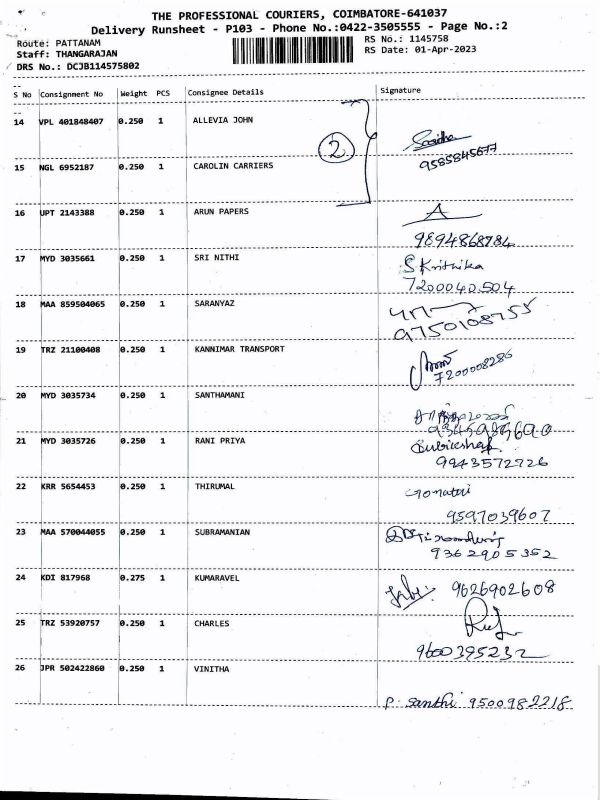 THE PROFESSIONAL COURIERS, COIMBATORE-641037
Delivery Runsheet - P103 - Phone No.:0422-3505555 - Page No.:2
Route: PATTANAM
RS No.: 1145758
Staff: THANGARAJAN
RS Date: 01-Apr-2023
DRS No.: DCJB114575802
S No Consignment No Weight PCS Consignee Details Signature
14 VPL 401848407 0.250 1 ALLEVIA JOHN
2
9585845677
15 NGL 6952187 0.250 1 CAROLIN CARRIERS
16 UPT 2143388 0.250 1 ARUN PAPERS
9894868784
17 MYD 3035661 0.250 1 SRI NITHI
S Krithika
7200040504
18 MAA 859504065 0.250 1 SARANYAZ
9750108755
19 TRZ 21100408 0.250 1 KANNIMAR TRANSPORT
7200008286
20 MYD 3035734 0.250 1 SANTHAMANI
21 MYD 3035726 0.250 1 RANI PRIYA
9943572726
22 KRR 5654453 0.250 1 THIRUMAL
9597039607
23 MAA 570044055 0.250 1 SUBRAMANIAN
9362905352
24 KDI 817968 0.275 1 KUMARAVEL
9626902608
25 TRZ 53920757 0.250 1 CHARLES
9600395232
26 JPR 502422860 0.250 1 VINITHA
P. Santhi 9500982218